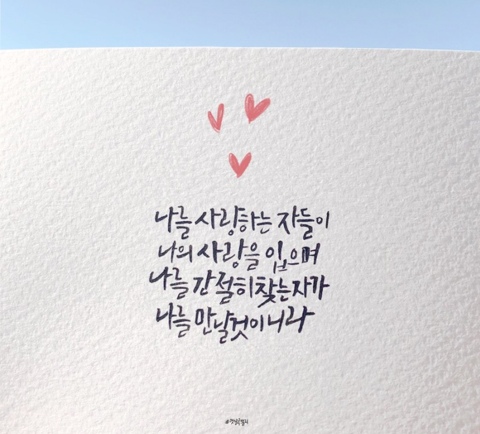 나를 사랑하는 자들이
나의 사랑을 입으며
나를 간절히 찾는자가
나를 만날것이니라